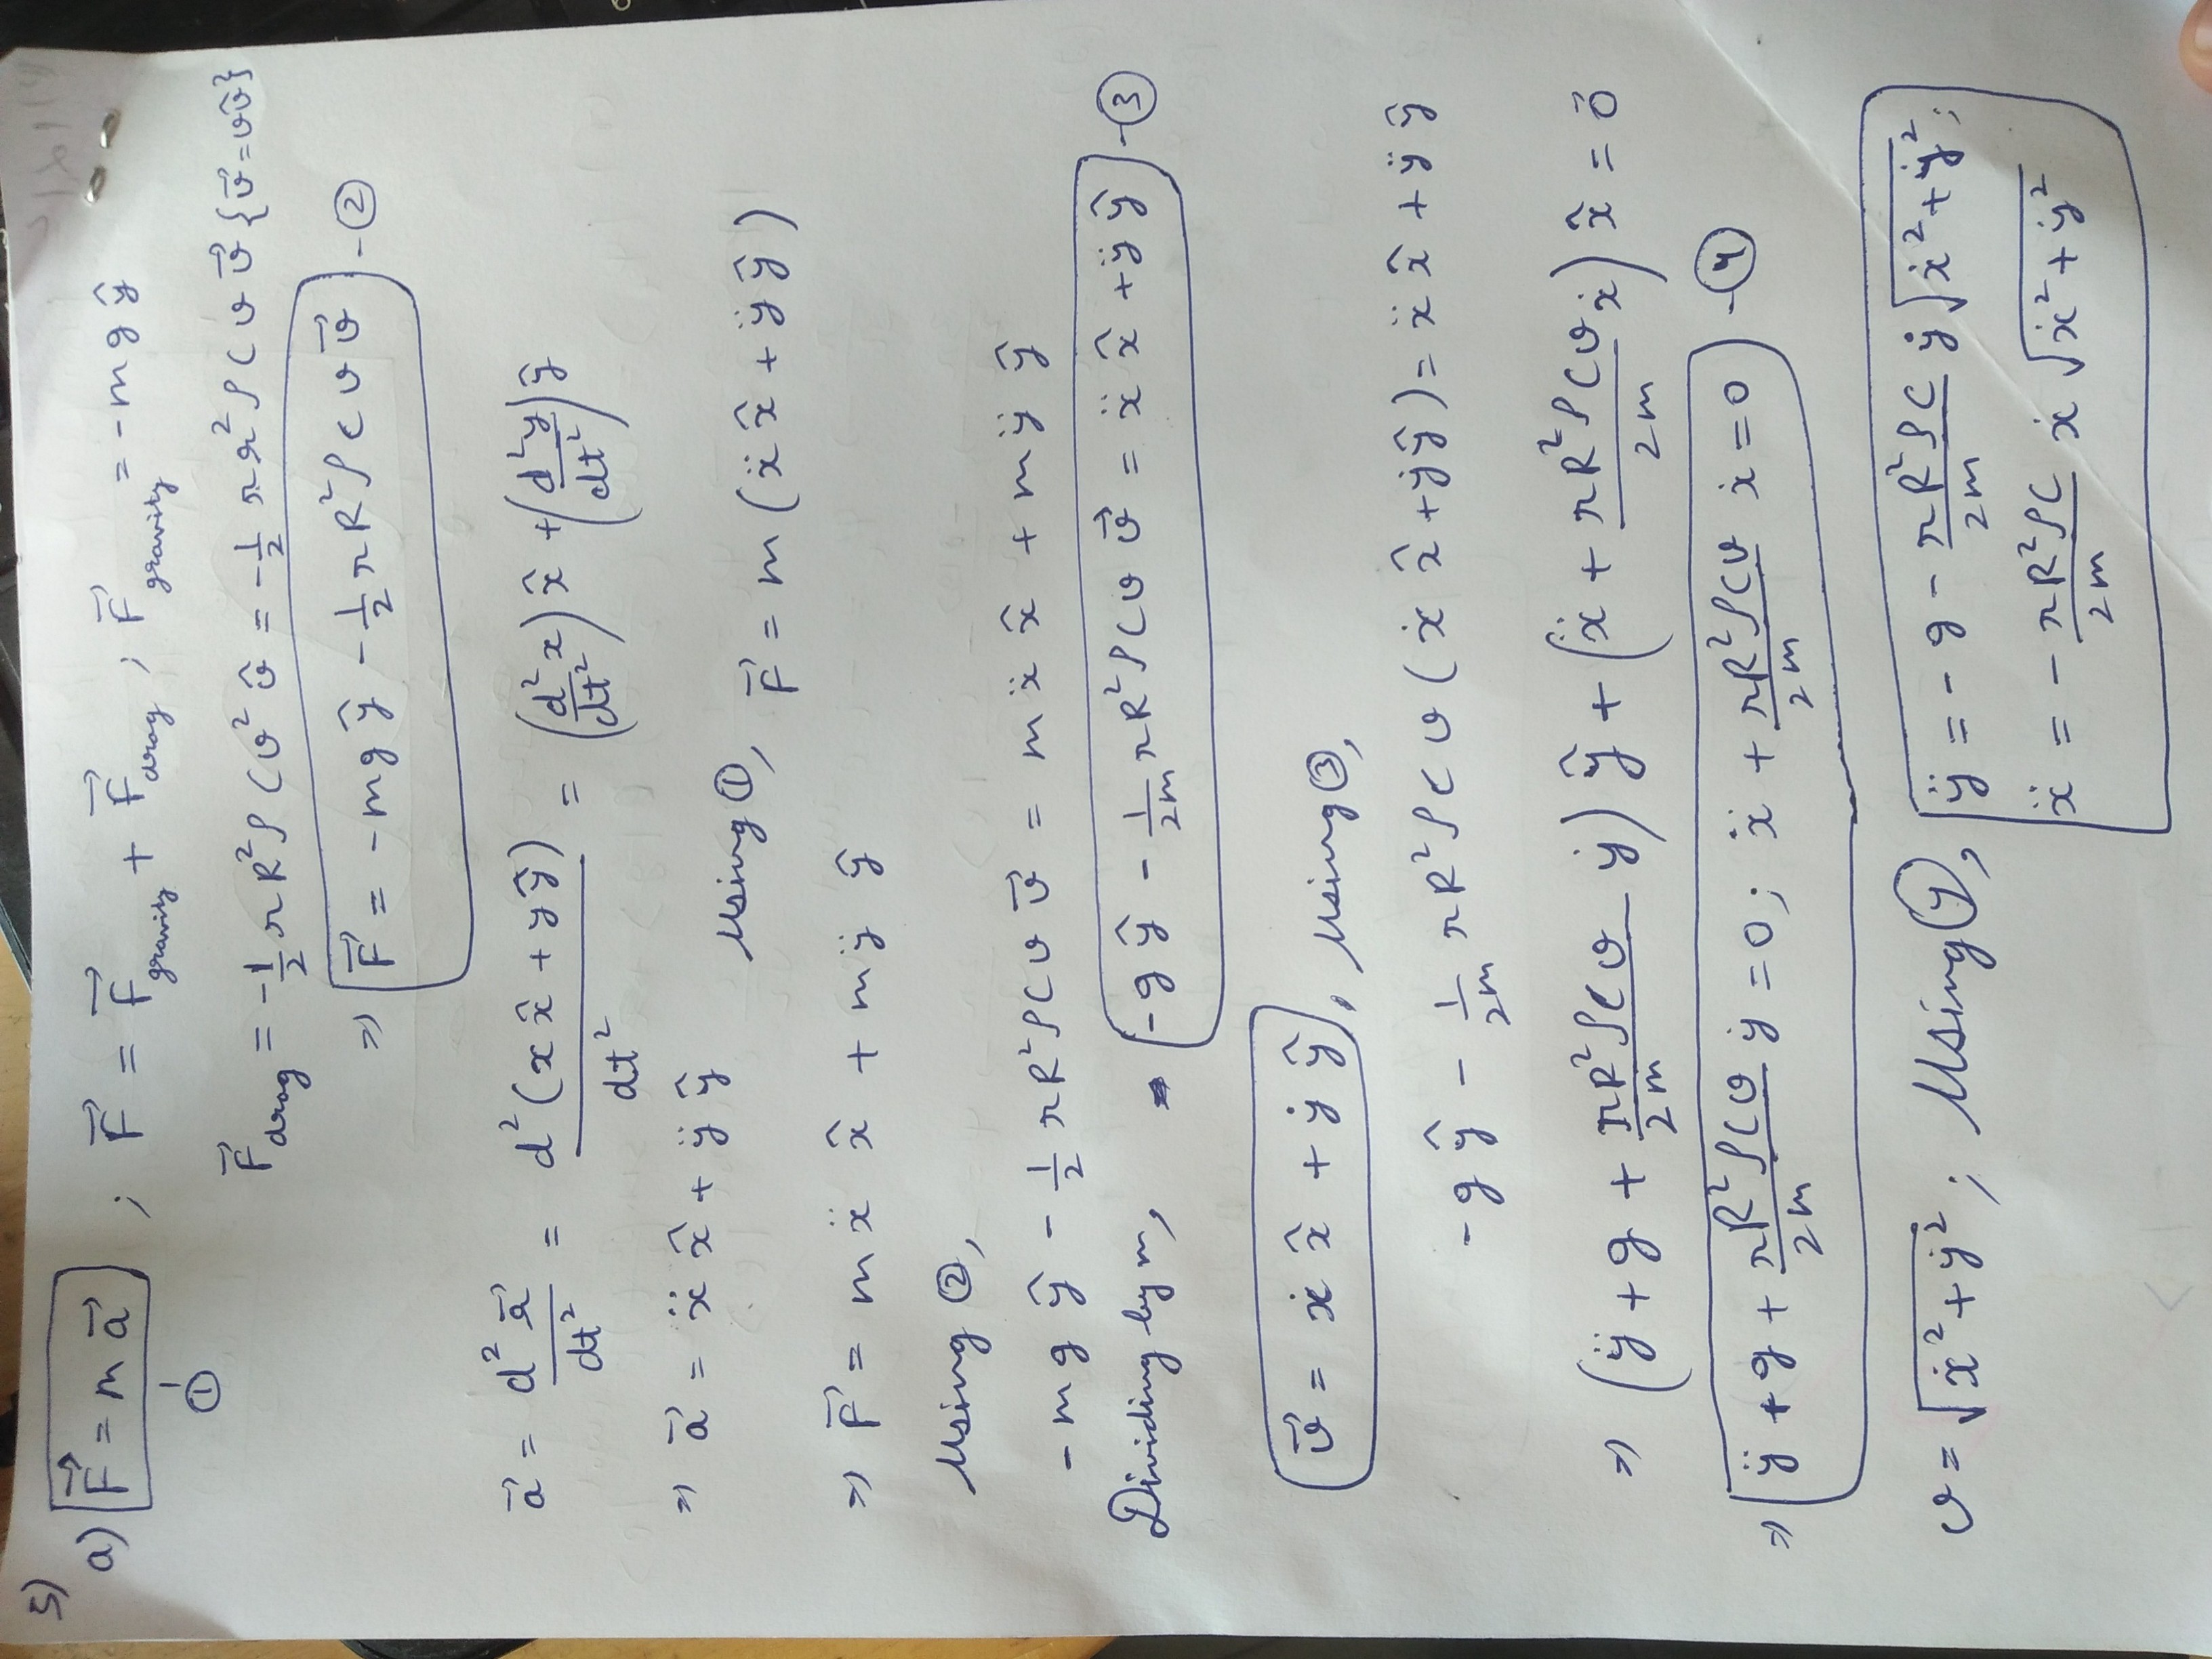 5)
a) F⃗ = m a⃗ ; F⃗ = F⃗gravity + F⃗drag ; F⃗gravity = -mg ŷ
①
F⃗drag = -1/2 πR²ρCv² v̂ = -1/2 πr²ρCv v⃗ {v⃗ = vv̂}
⇒ F⃗ = -mg ŷ - 1/2 πR²ρCv v⃗ - ②
a⃗ = d² r⃗/dt² = d²(x x̂ + y ŷ)/dt² = (d²x/dt²) x̂ + (d²y/dt²) ŷ
⇒ a⃗ = ẍ x̂ + ÿ ŷ Using ①, F⃗ = m (ẍ x̂ + ÿ ŷ)
⇒ F⃗ = mẍ x̂ + mÿ ŷ
Using ②,
-mg ŷ - 1/2 πR²ρCv v⃗ = mẍ x̂ + mÿ ŷ
Dividing by m, -g ŷ - 1/2m πR²ρCv v⃗ = ẍ x̂ + ÿ ŷ - ③
v⃗ = ẋ x̂ + ẏ ŷ, Using ③,
-g ŷ - 1/2m πR²ρCv (ẋ x̂ + ẏ ŷ) = ẍ x̂ + ÿ ŷ
⇒ (ÿ + g + πR²ρCv/2m ẏ) ŷ + (ẍ + πR²ρCv/2m ẋ) x̂ = 0⃗
⇒ ÿ + g + πR²ρCv/2m ẏ = 0; ẍ + πR²ρCv/2m ẋ = 0 - ④
v = √(ẋ² + ẏ²) ; Using ④, ÿ = -g - πR²ρC/2m ẏ √(ẋ² + ẏ²) ;
ẍ = - πR²ρC/2m ẋ √(ẋ² + ẏ²)